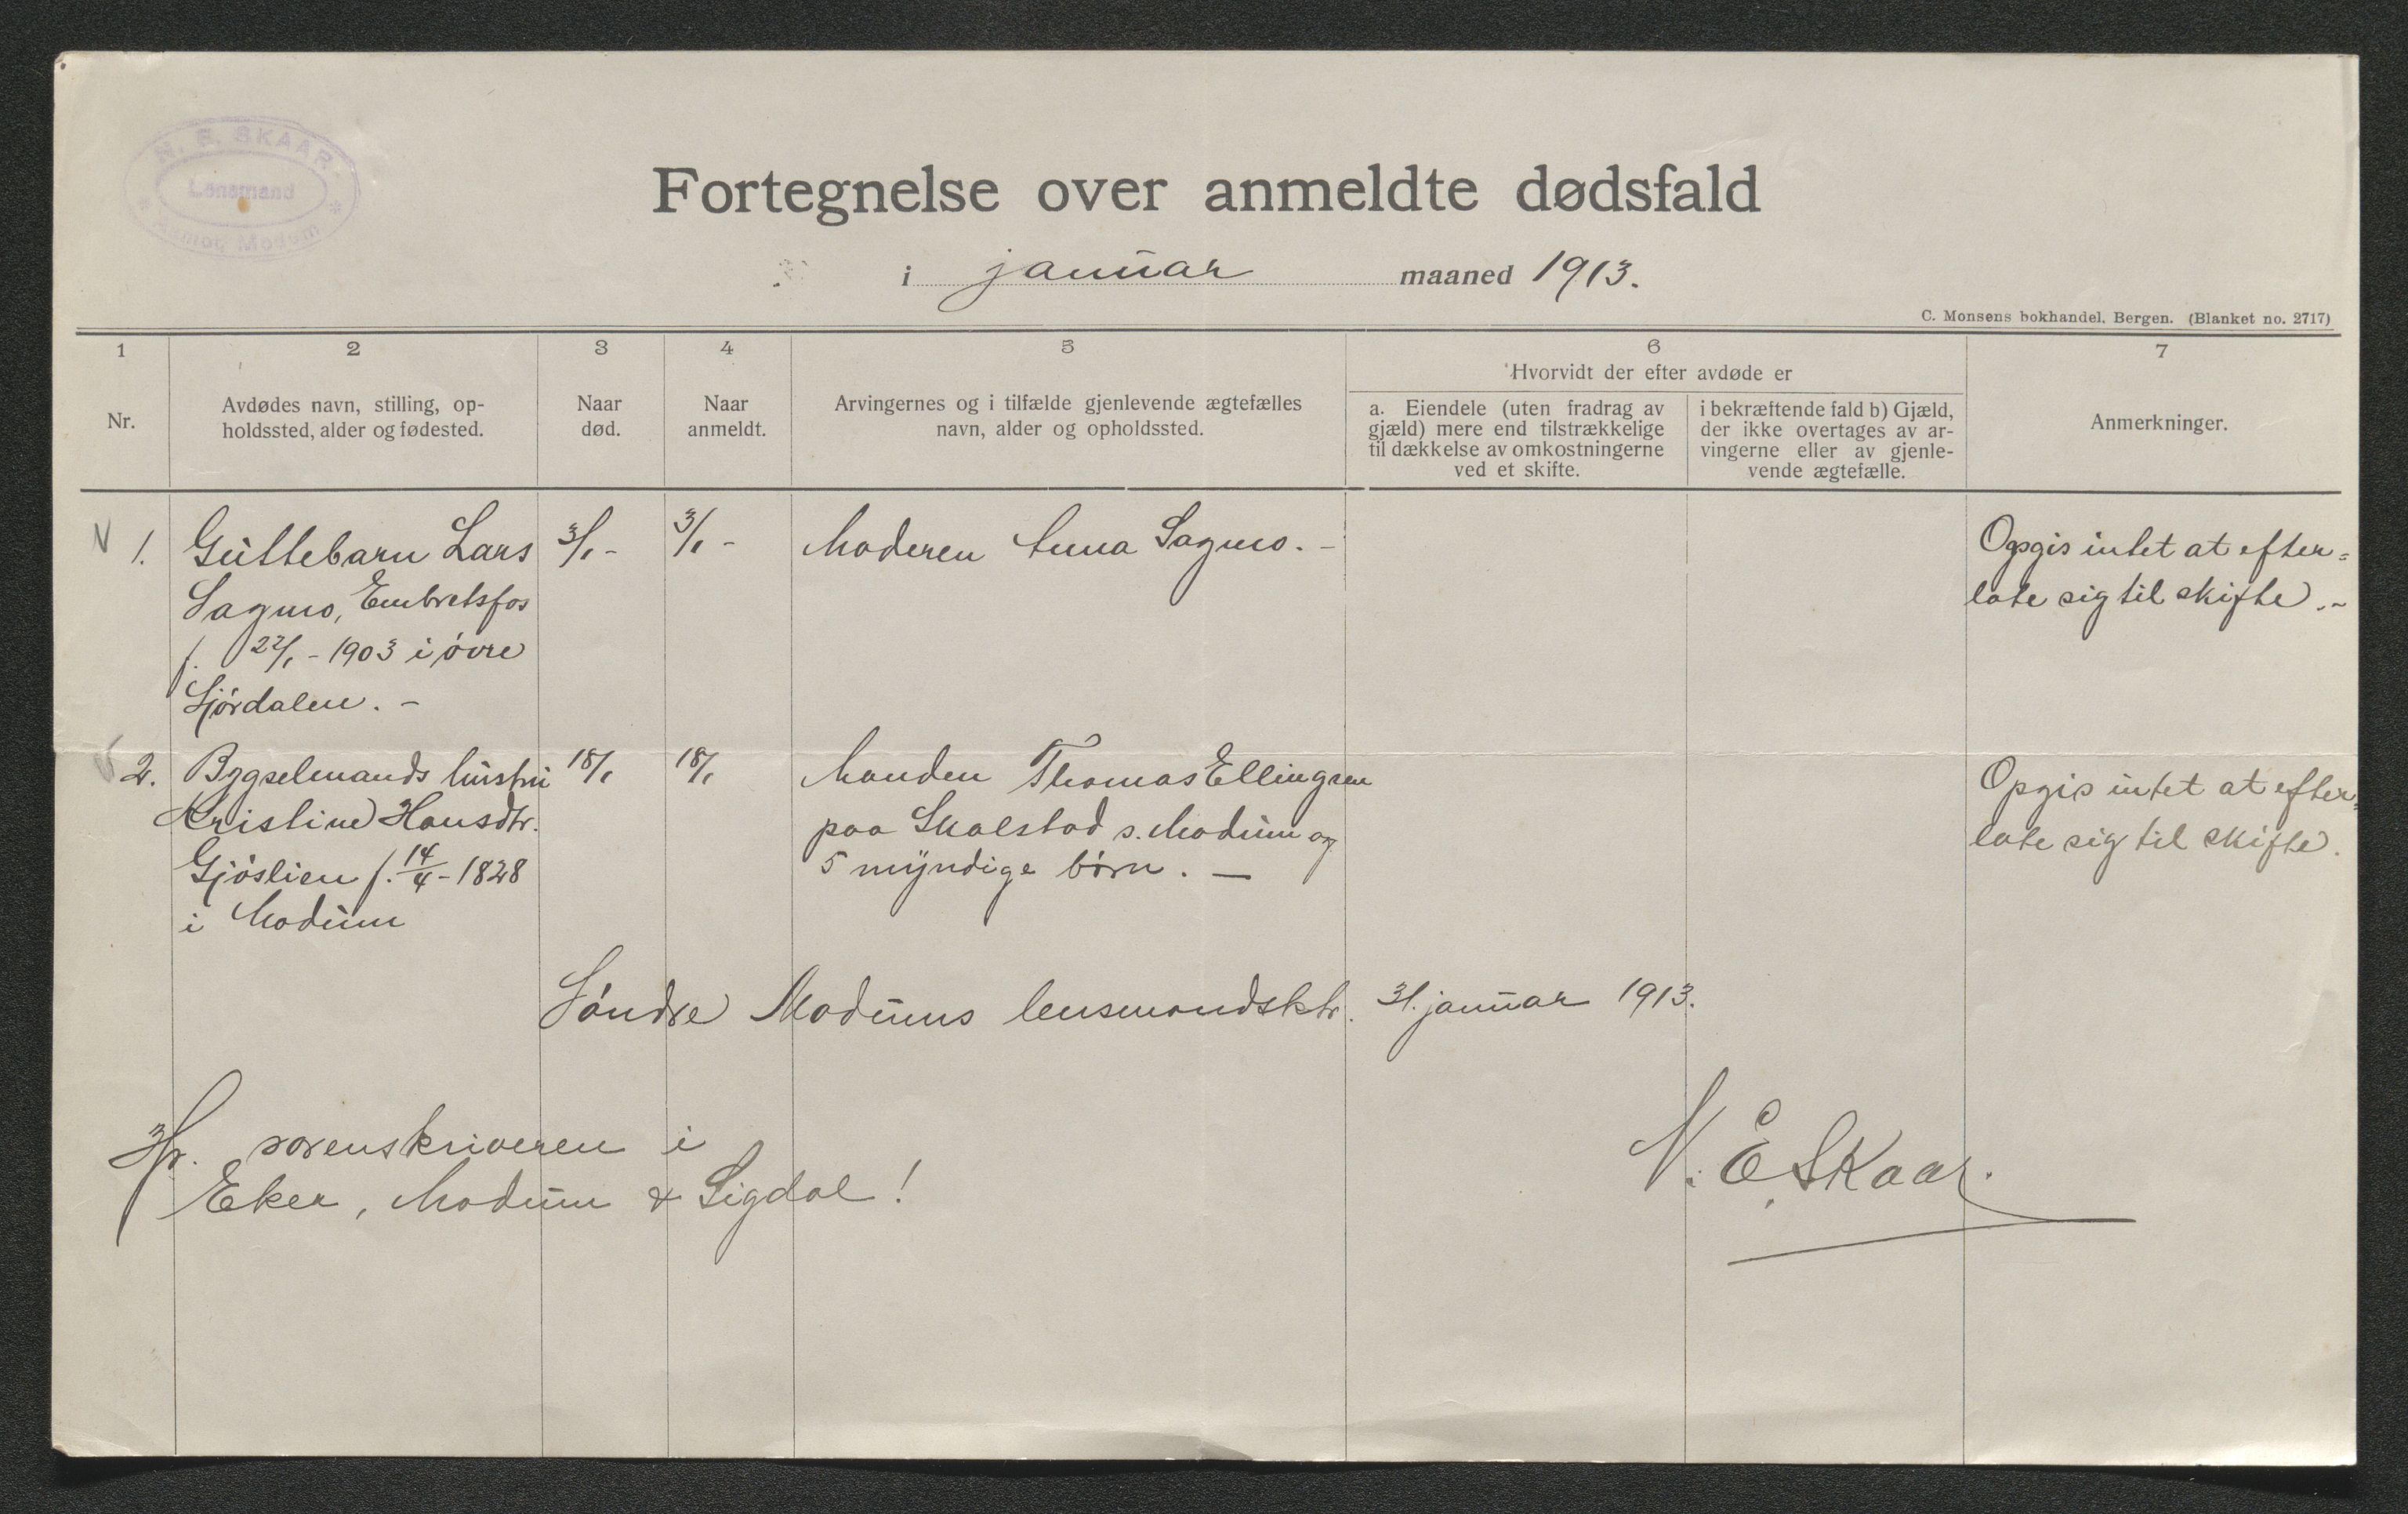 N. E. SKAAR.
Lensmand
Aamot, Modum
Fortegnelse over anmeldte dødsfald
i januar maaned 1913.
C. Monsens bokhandel, Bergen. (Blanket no. 2717)
1 2 3 4 5 6 7
Hvorvidt der efter avdøde er
Nr.
Avdødes navn, stilling, op-
holdssted, alder og fødested.
Naar
død.
Naar
anmeldt.
Arvingernes og i tilfælde gjenlevende ægtefælles
navn, alder og opholdssted.
a. Eiendele (uten fradrag av
gjæld) mere end tilstrækkelige
til dækkelse av omkostningerne
ved et skifte.
i bekræftende fald b) Gjæld,
der ikke overtages av ar-
vingerne eller av gjenle-
vende ægtefælle.
Anmerkninger.
1. Guttebarn Lars
Sagmo, Embretsfos
f. 22/1 - 1903 i øvre
Sjørdalen. -
3/1 -
3/1 -
Moderen Anna Sagmo. -
Opgis intet at efter=
late sig til skifte. -
2. Bygselmands hustru
Kristine Hansdtr.
Gjøslien f. 14/4 - 1828
i Modum
18/1
18/1
Manden Thomas Ellingsen
paa Skalstad s. Modum og
5 myndige børn. -
Opgis intet at efter=
late sig til skifte.
Søndre Modums lensmandsktr. 31. januar 1913.
Hr. sorenskriveren i
Eker, Modum & Sigdal!
N. E. Skaar.